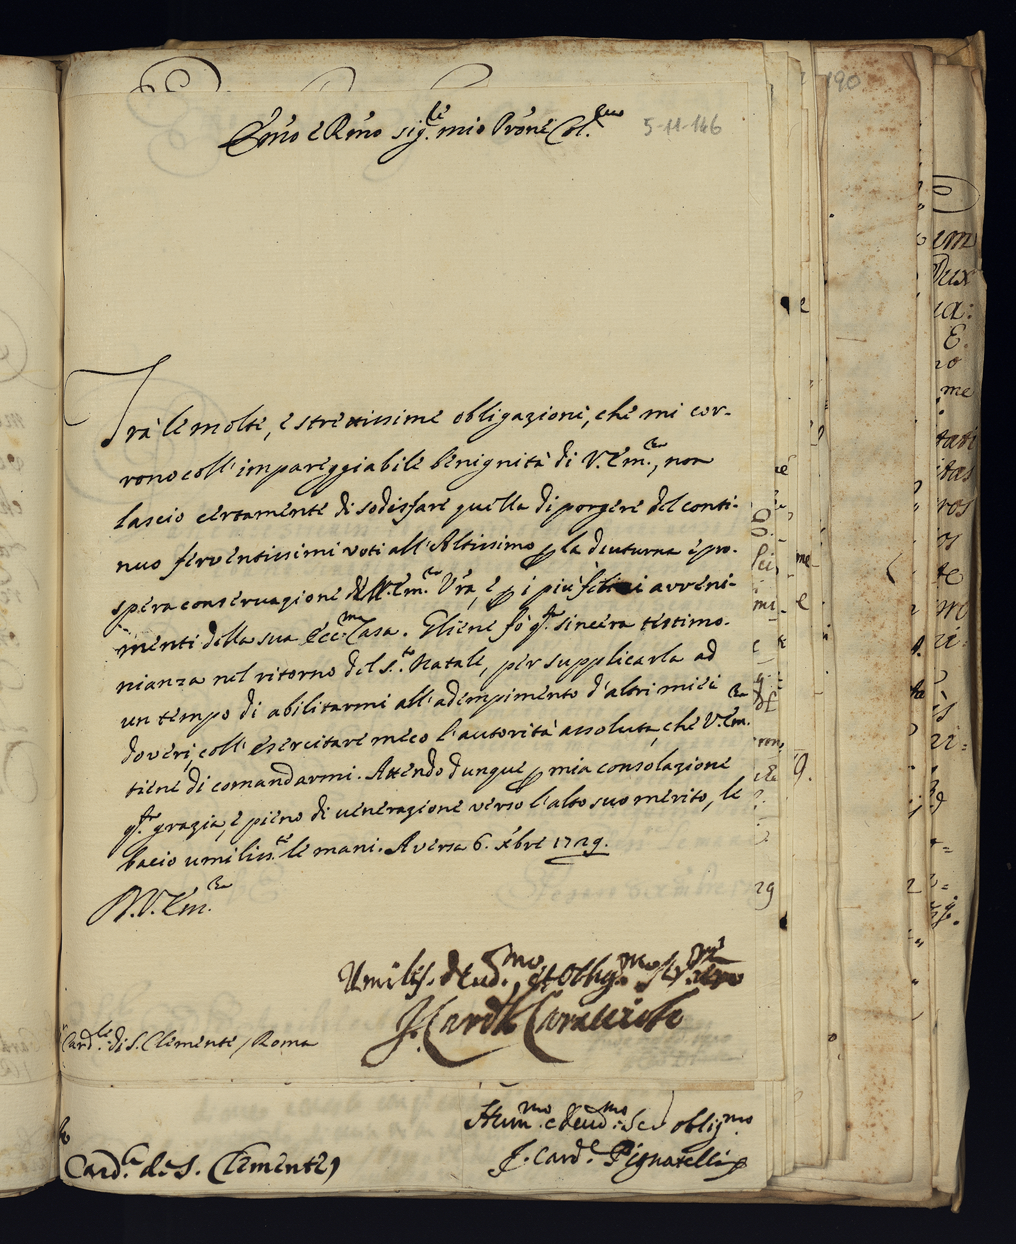 Em̃o e Rm̃o sig.re mio Pron̄e Col.mo
5-11-146
190
Trà le molte, e strettissime obligazioni, che mi cor-
rono coll'impareggiabile benignità di V. Em.za, non
lascio certamente di sodisfare quella di porgere del conti-
nuo ferventissimi voti all'Altissimo p la diuturna e pro-
spera conservazione dell'Em.za Vr̃a, e p i più felici avveni-
menti della sua Ecc.ma Casa. Gliene fò q.ta sincera testimo-
nianza nel ritorno del S.to Natale, per supplicarla ad
un tempo di abilitarmi all'adempimento d'altri miei
doveri, coll'esercitare meco l'autorità assoluta, che V. Em.za
tiene di comandarmi. Attendo dunque p mia consolazione
q.ta grazia, e pieno di venerazione verso l'alto suo merito, le
bacio umiliss.te le mani. Aversa 6. Xbre 1729.
Di V. Em.za
Umilis. Deud.mo, et Obbg.mo
J. Card.le Caracciolo
Card.le di S. Clemente / Roma
Hum.mo e deud.mo Ser oblig.mo
F. Card.le Pignatelli
Card.le de S. Clemente)